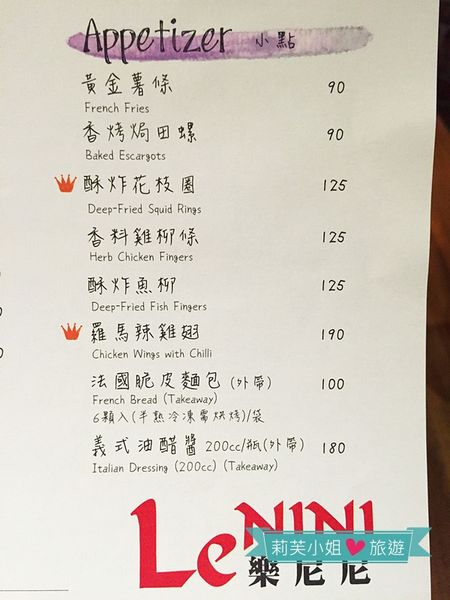 Appetizer 小點
黃金薯條 90
French Fries
香烤焗田螺 90
Baked Escargots
酥炸花枝圈 125
Deep-Fried Squid Rings
香料雞柳條 125
Herb Chicken Fingers
酥炸魚柳 125
Deep-Fried Fish Fingers
羅馬辣雞翅 190
Chicken Wings with Chilli
法國脆皮麵包 (外帶) 100
French Bread (Takeaway)
6顆入(半熟冷凍需烘烤)/袋
義式油醋醬 200cc/瓶(外帶) 180
Italian Dressing (200cc) (Takeaway)
Le NINI
莉芙小姐❤旅遊
樂尼尼